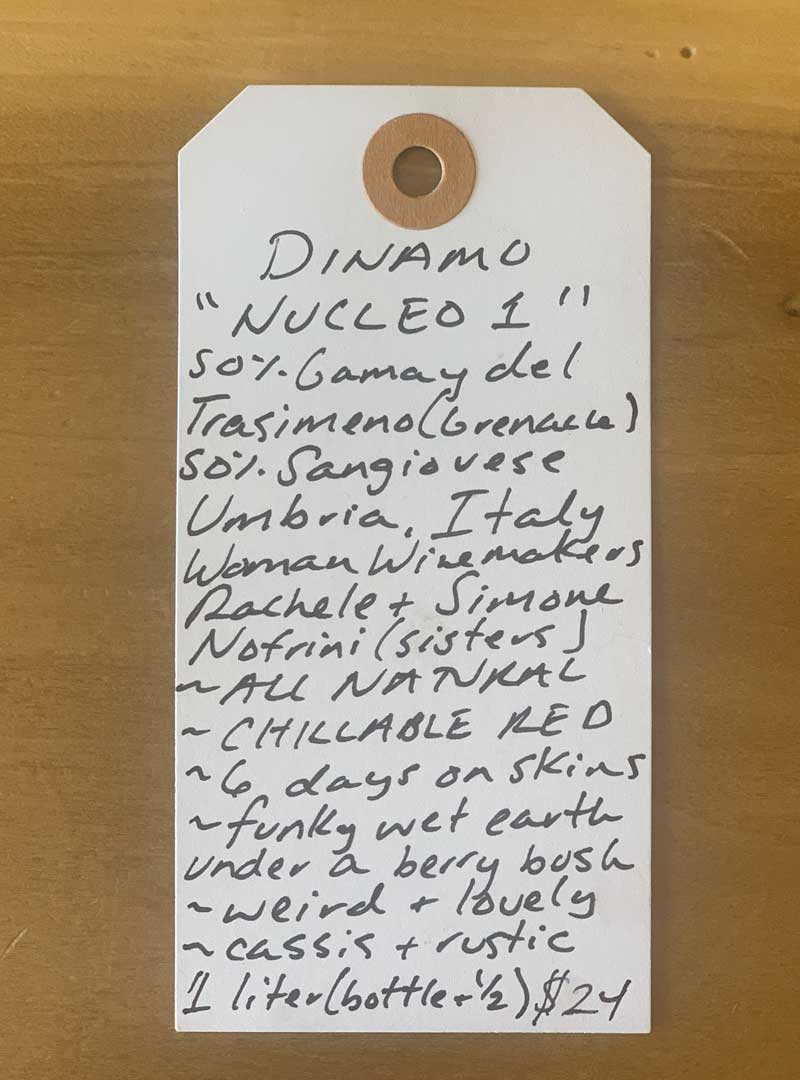 DINAMO
"NUCLEO 1"
50% Gamay del
Trasimeno (Grenache)
50% Sangiovese
Umbria, Italy
Woman Winemakers
Rachele + Simone
Nofrini (sisters)
~ALL NATURAL
~CHILLABLE RED
~6 days on skins
~funky wet earth
under a berry bush
~weird + lovely
~cassis + rustic
1 liter (bottle + 1/2) $24